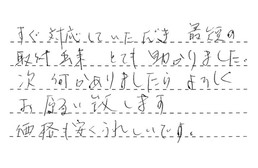 すぐ対応していただき 最短の
取付出来 とても助かりました。
次 何かありましたら よろしく
お願い致します
価格も安くうれしいです。